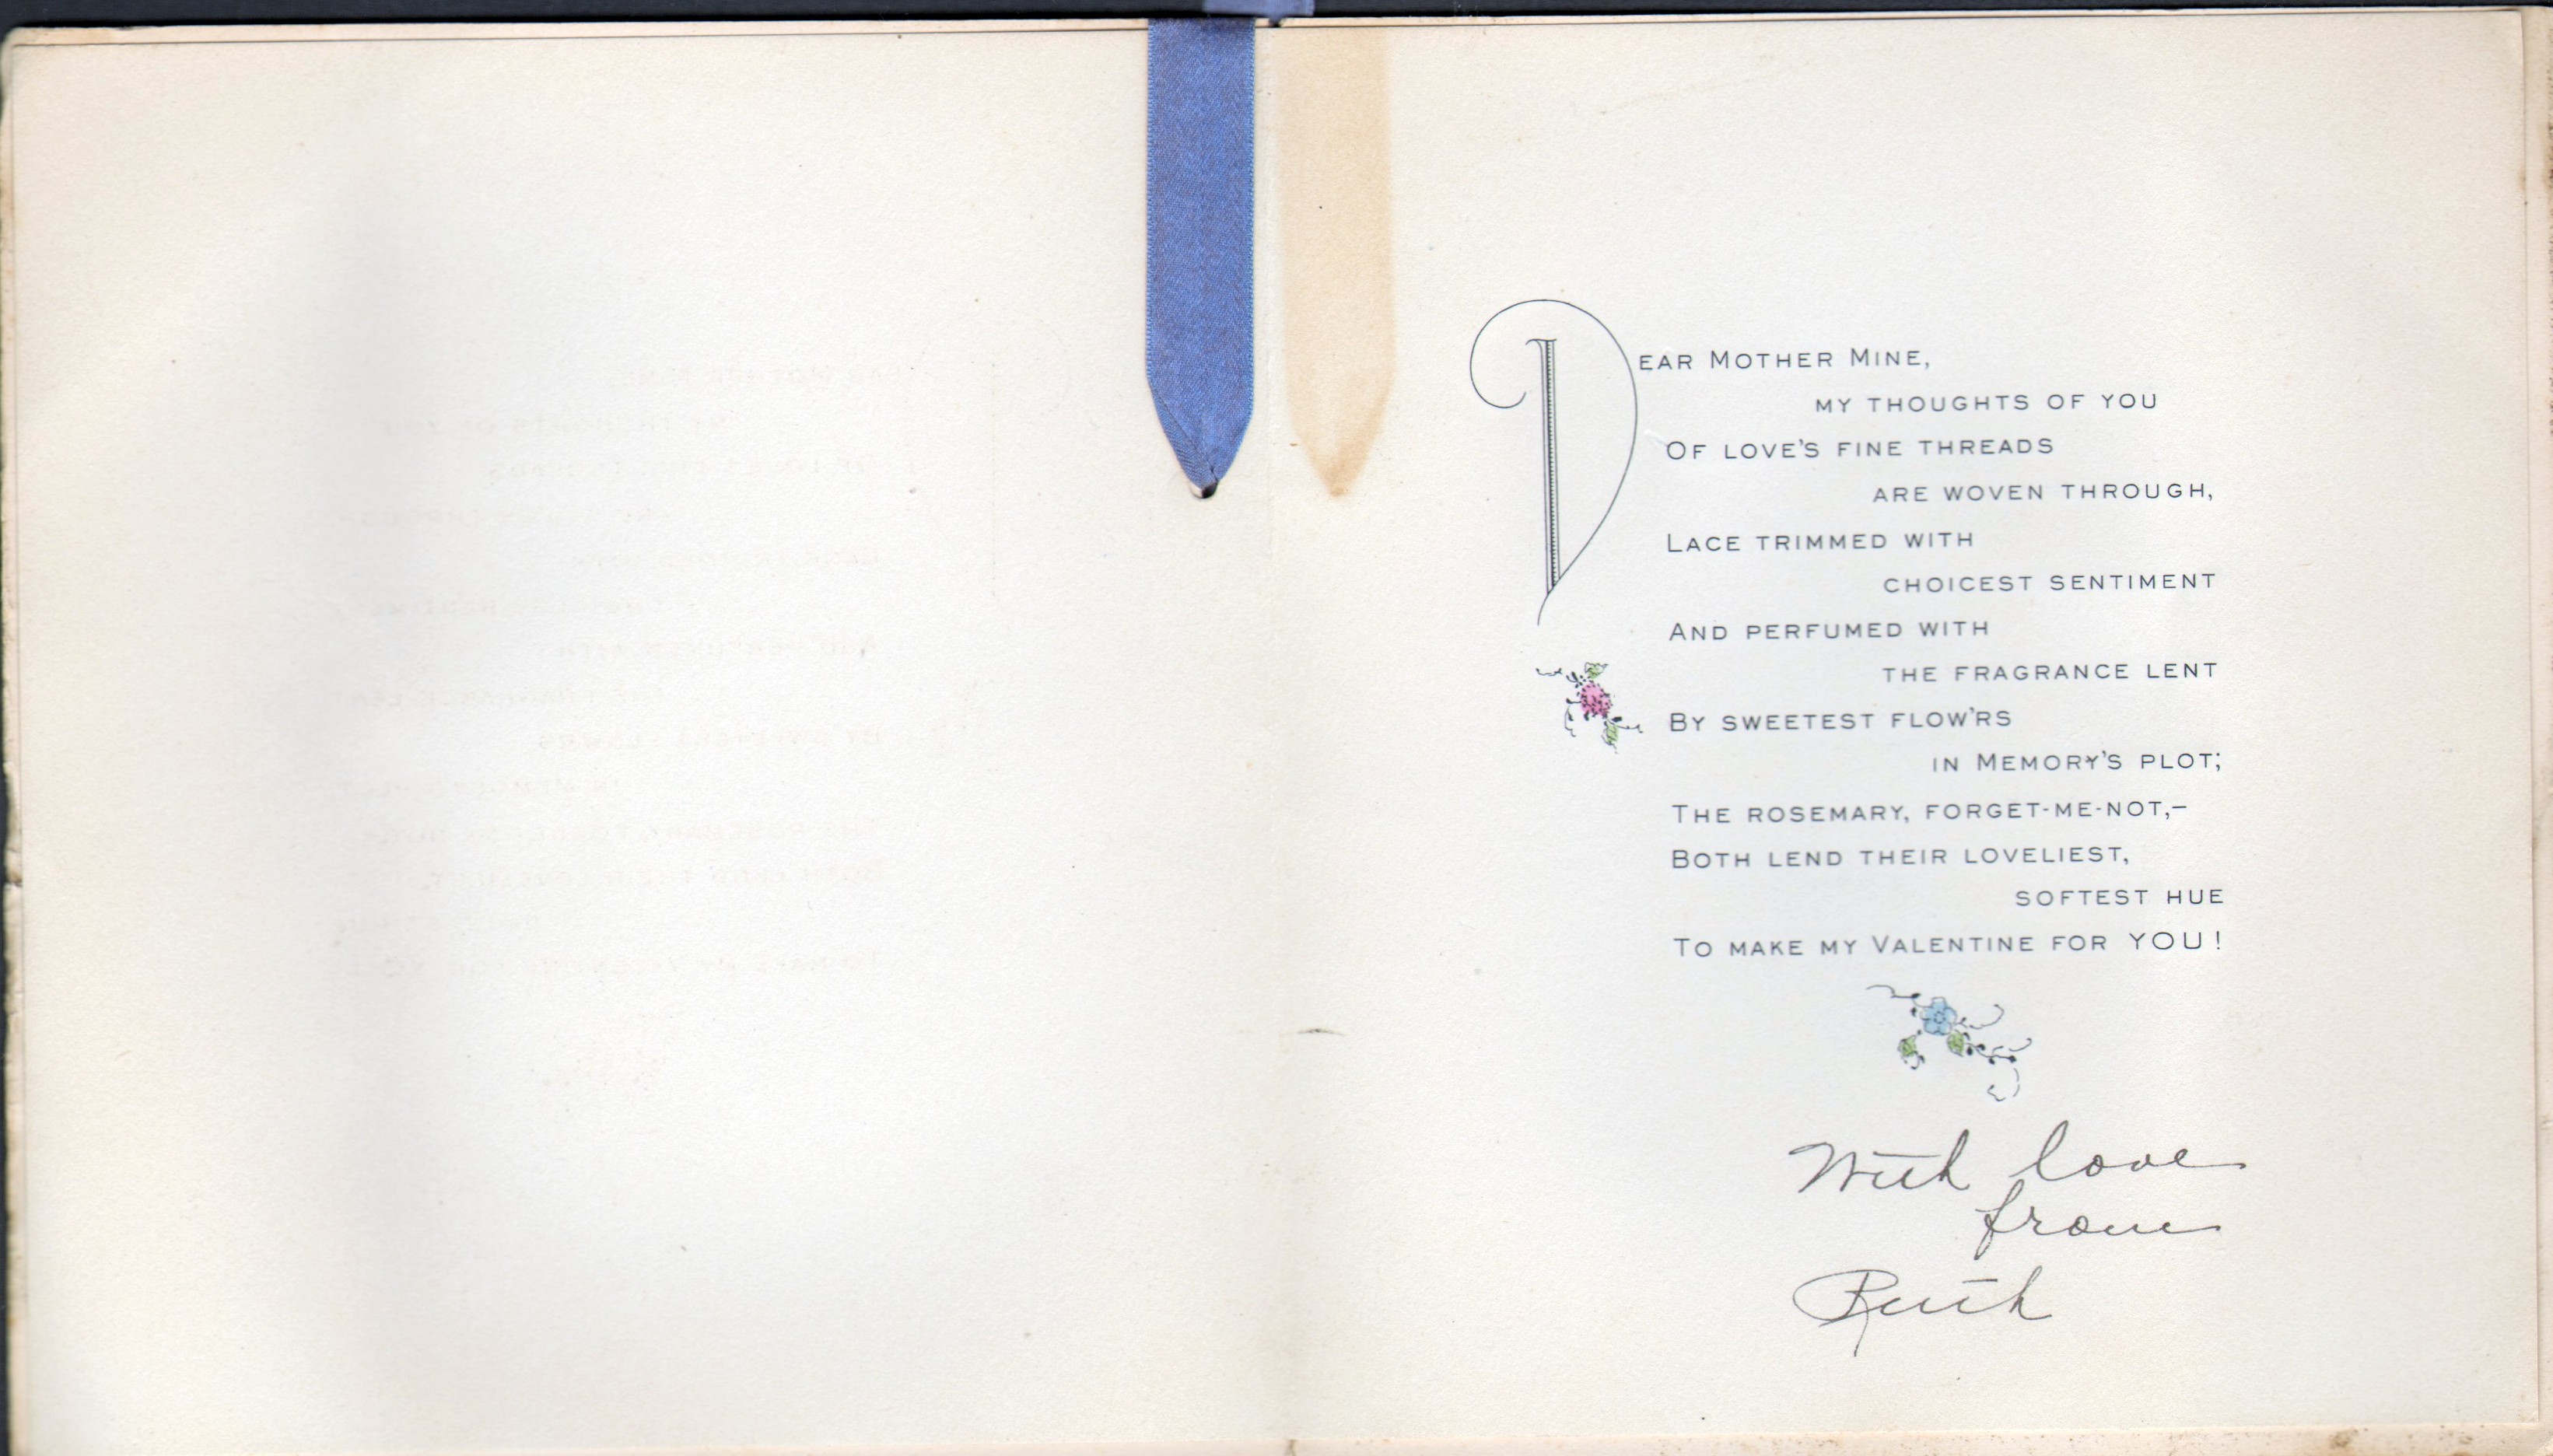 DEAR MOTHER MINE,
MY THOUGHTS OF YOU
OF LOVE'S FINE THREADS
ARE WOVEN THROUGH,
LACE TRIMMED WITH
CHOICEST SENTIMENT
AND PERFUMED WITH
THE FRAGRANCE LENT
BY SWEETEST FLOW'RS
IN MEMORY'S PLOT;
THE ROSEMARY, FORGET-ME-NOT,–
BOTH LEND THEIR LOVELIEST,
SOFTEST HUE
TO MAKE MY VALENTINE FOR YOU!
With love
from
Ruth